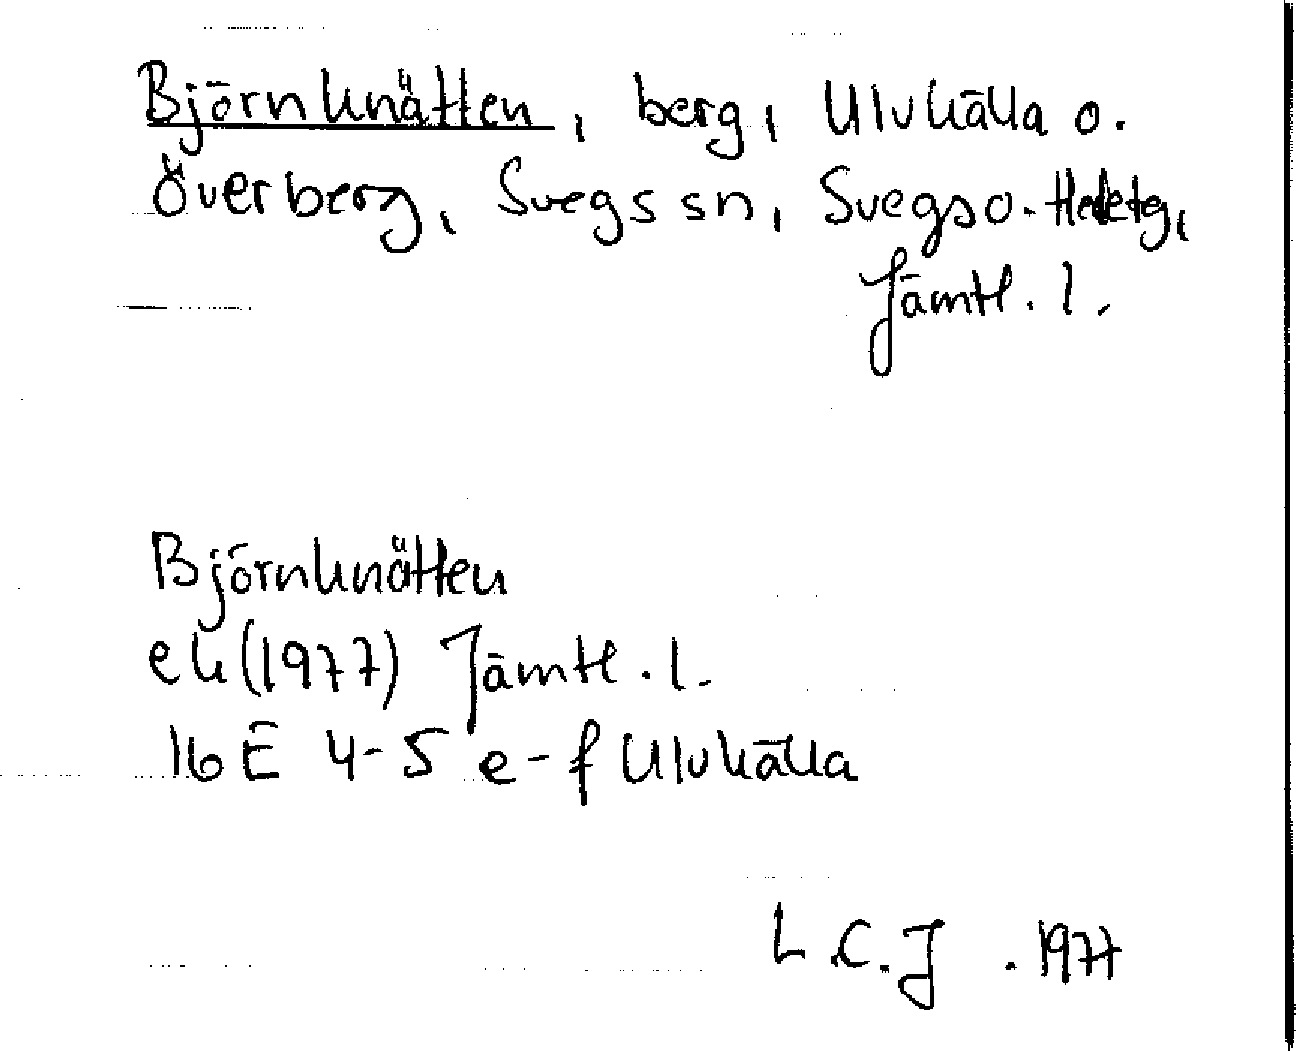 Björnknätten, berg, Ulvkälla o.
Överberg, Svegs sn, Svegs o. Hedetg,
Jämtl. l.
Björnknätten
ek (1977) Jämtl. l.
16E 4-5 e-f Ulvkälla
L.C.J. 1977